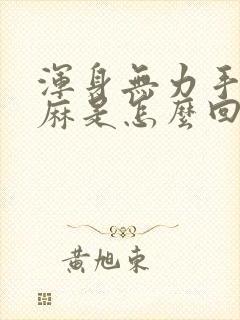 渾身無力手
麻是怎麼回
黃旭東